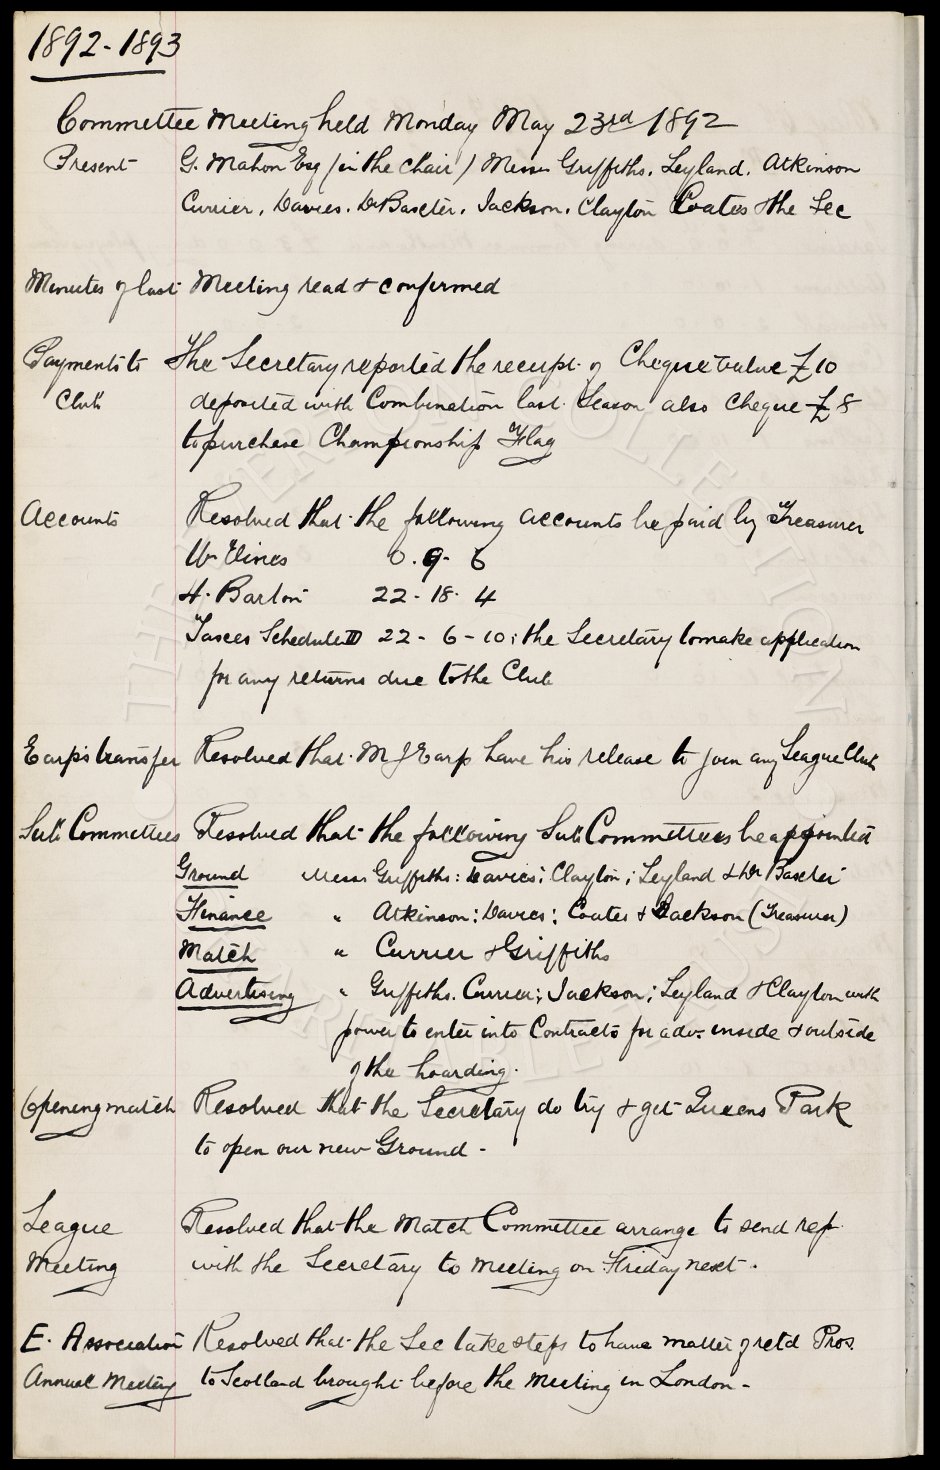 1892-1893
Committee Meeting held Monday May 23rd 1892
Present G. Mahon Esq (in the chair) Messrs Griffiths. Leyland. Atkinson
Currier. Davies. Dr Baxter. Jackson. Clayton Coates & the Sec
Minutes of last Meeting read & confirmed
Payments to The Secretary reported the receipt of Cheque value £10
Club deposited with Combination last Season also cheque £8
to purchase Championship Flag
Accounts Resolved that the following accounts be paid by Treasurer
Wm Vines 0. 9. 6
H. Barton 22 - 18. 4
Taxes Schedule D 22 - 6 - 10; the Secretary to make application
for any returns due to the Club
Earps transfer Resolved that M J Earp have his release to join any League Club
Sub Committees Resolved that the following Sub Committees be appointed
Ground Messrs Griffiths: Davies; Clayton; Leyland & Dr Baxter
Finance " Atkinson; Davies; Coates & Jackson (Treasurer)
Match " Currier & Griffiths
Advertising " Griffiths. Currier; Jackson; Leyland & Clayton with
power to enter into Contracts for adv. inside & outside
of the hoarding.
Opening match Resolved that the Secretary do try & get Queens Park
to open our new Ground -
League Resolved that the Match Committee arrange to send rep.
Meeting with the Secretary to meeting on Friday next.
E. Association Resolved that the Sec take steps to have matter of retd Pros.
Annual Meeting to Scotland brought before the Meeting in London -
THE EVERTON COLLECTION
CHARITABLE TRUST